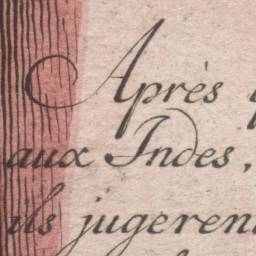 Après
aux Indes,
ils jugeren